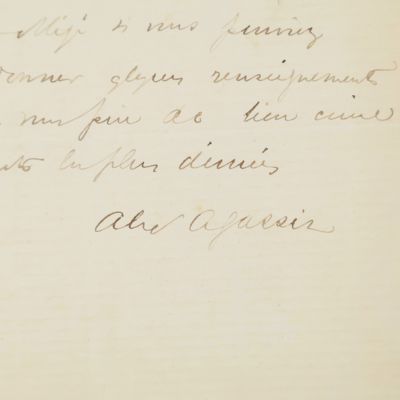 Obligé si vous pouviez
donner qlques renseignements
vous prie de bien
les plus dévoués
Alex Agassiz